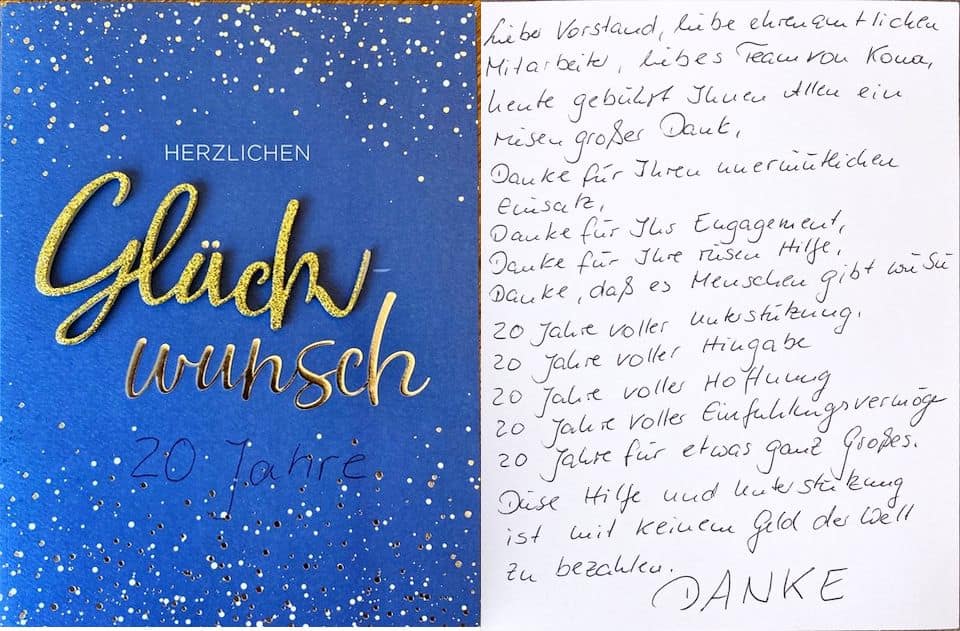 HERZLICHEN
Glück
wunsch
20 Jahre
Lieber Vorstand, liebe ehrenamtlichen
Mitarbeiter, liebes Team von Kona,
heute gebührt Ihnen Allen ein
riesen großer Dank,
Danke für Ihren unermütlichen
Einsatz,
Danke für Ihr Engagement,
Danke für Ihre riesen Hilfe,
Danke, daß es Menschen gibt wie Sie
20 Jahre voller Unterstützung,
20 Jahre voller Hingabe
20 Jahre voller Hoffnung
20 Jahre voller Einfühlungsvermöge
20 Jahre für etwas ganz Großes.
Diese Hilfe und Unterstützung
ist mit keinem Geld der Welt
zu bezahlen.
DANKE